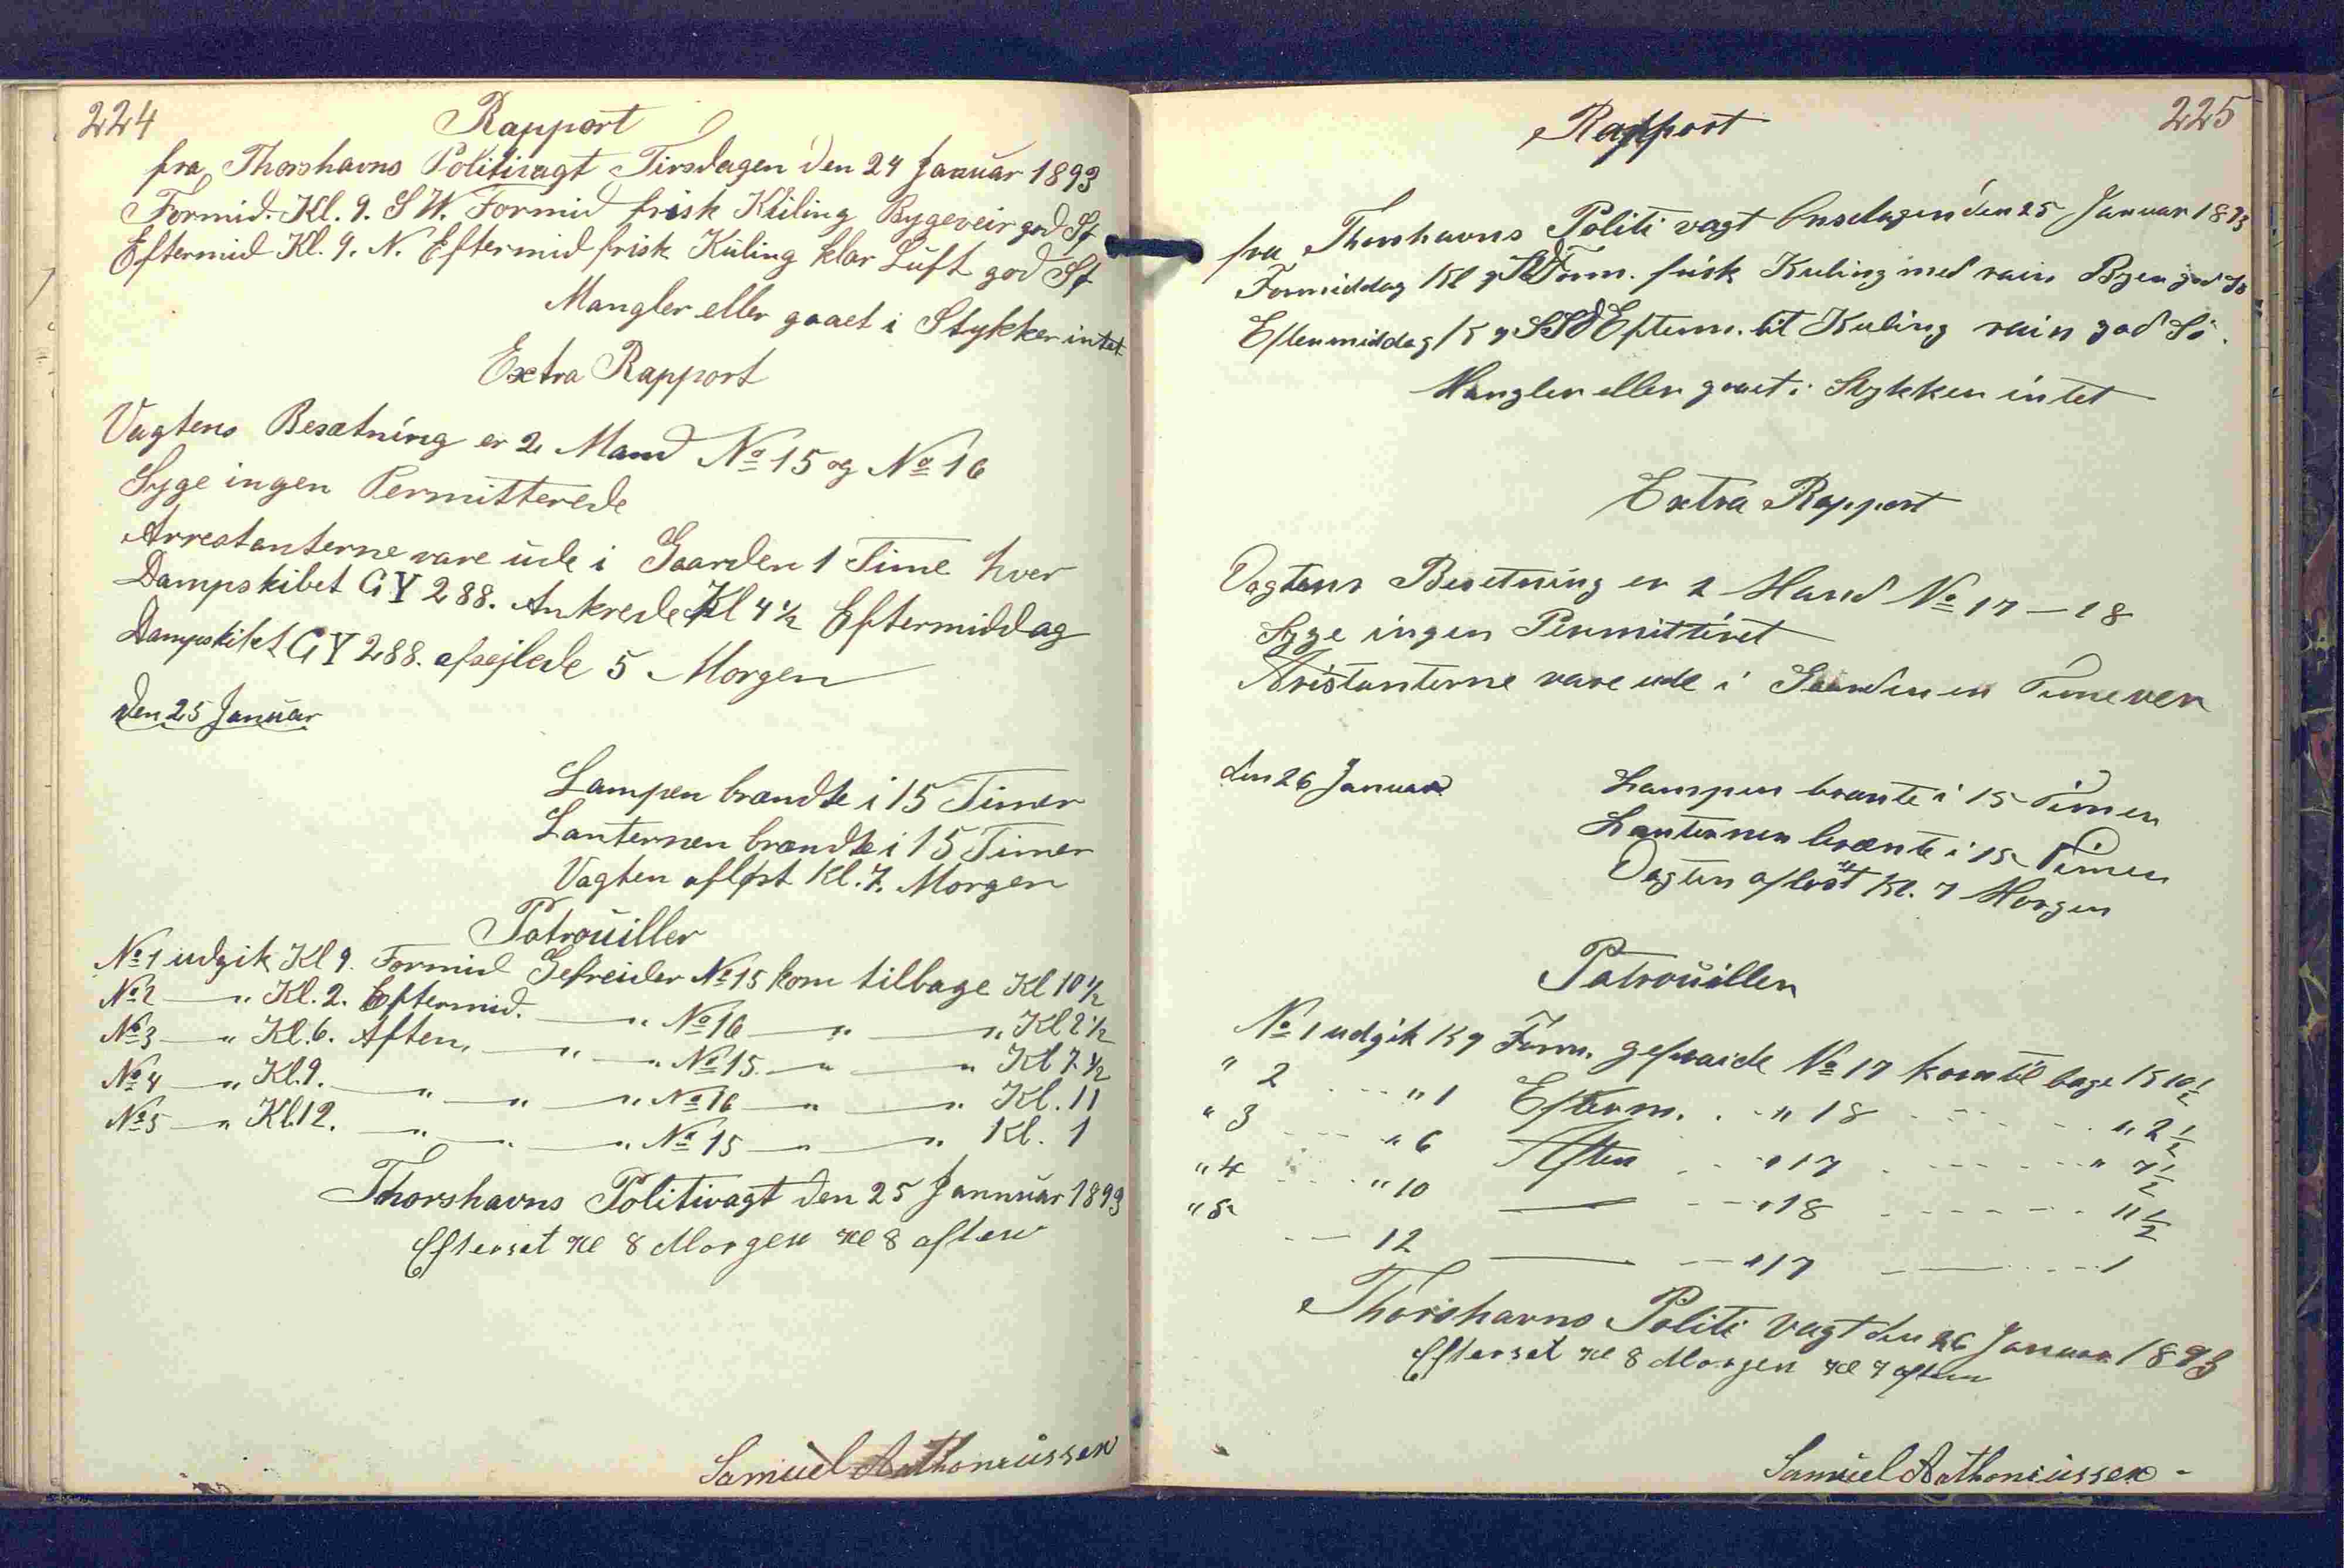 224
Rapport
fra Thorshavns Politivagt Tirsdagen den 24 Januar 1893
Formid. Kl. 9. S W. Formid frisk Kuling Bygeveir god Sø
Eftermid Kl. 9. N. Eftermid frisk Kuling klar Luft god Sø
Mangler eller gaaet i Stykker intet
Extra Rapport
Vagtens Besætning er 2 Mand No 15 og No 16
Syge ingen Permitterede
Arrestanterne vare ude i Gaarden 1 Time hver
Dampskibet GY 288. Ankrede Kl 4 1/2 Eftermiddag
Dampskibet GY 288. afsejlede 5 Morgen
den 25 Januar
Lampen brændte i 15 Timer
Lanternen brændte i 15 Timer
Vagten afløst Kl. 7. Morgen
Patrouiller
No 1 udgik Kl 9. Formid Gefreider No 15 kom tilbage Kl 10 1/2
No 2 — " Kl. 2. Eftermid. — " No 16 — " — " Kl 2 1/2
No 3 — " Kl. 6. Aften, — " — " No 15. — " — " Kl 7 1/2
No 4 — " Kl. 9. — " — " — " No 16 — " — " Kl. 11
No 5 — " Kl 12. — " — " — " No 15 — " — " Kl. 1
Thorshavns Politivagt den 25 Jannuar 1893
Efterset Kl 8 Morgen Kl 8 aften
Samuel Anthoniussen
225
Rapport
fra Thorshavns Politi vagt Onsdagen den 25 Januar 1893
Formiddag Kl 9 Form. frisk Kuling med rain Byen god So
Eftermiddag K 9 Efterm. lit Kuling rain god So.
Mangler eller gaaet i Stykker intet
Extra Rapport
Vagtens Besetning er 2 Mand No 17 — 18
Syge ingen Permitteret
Aristanterne vare ude i Gaarden en Time ver
den 26 Januar
Lampen brænte i 15 Timer
Lanternen brænte i 15 Timer
Vagten afløst Kl. 7 Morgen
Patrouiller
No 1 udgik K 9 Form. gefraide No 17 kom til bage K 10 1/2
" 2 - - - " 1 Efterm. - - " 18 - - - - " 2 1/2
" 3 - - - " 6 Aften - - " 17 - - - - " 7 1/2
" 4 - - - " 10 — - - " 18 - - - - 11 1/2
" 5 - - - 12 — - - " 17 — - - - 1
Thorshavns Politi Vagt den 26 Januar 1893
Efterset Kl 8 Morgen Kl 7 aften
Samuel Anthoniussen -